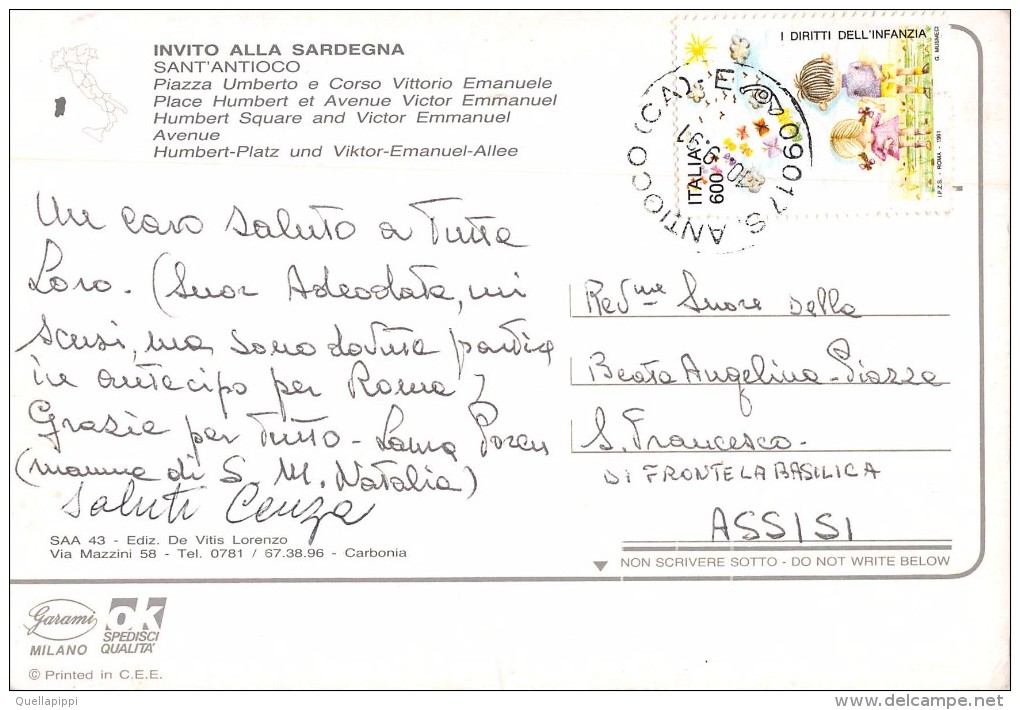 INVITO ALLA SARDEGNA
SANT'ANTIOCO
Piazza Umberto e Corso Vittorio Emanuele
Place Humbert et Avenue Victor Emmanuel
Humbert Square and Victor Emmanuel
Avenue
Humbert-Platz und Viktor-Emanuel-Allee
I DIRITTI DELL'INFANZIA
G. MUSMECI
ITALIA
600
I.P.Z.S. - ROMA - 1991
09017 S. ANTIOCO (CA) - E
10.9.91
Un caro saluto a Tutte
Loro. (Suor Adeodata, mi
scusi, ma sono dovuta partire
in antecipo per Roma)
Grazie per Tutto -
(mamma di S. M. Natalia)
Saluti Cenza
Rev.me Suore della
Beata Angelina - Piazza
S. Francesco -
DI FRONTE LA BASILICA
ASSISI
SAA 43 - Ediz. De Vitis Lorenzo
Via Mazzini 58 - Tel. 0781 / 67.38.96 - Carbonia
NON SCRIVERE SOTTO - DO NOT WRITE BELOW
Garami
MILANO
ok
SPEDISCI
QUALITA'
© Printed in C.E.E.
Quellapippi
delcampe.net